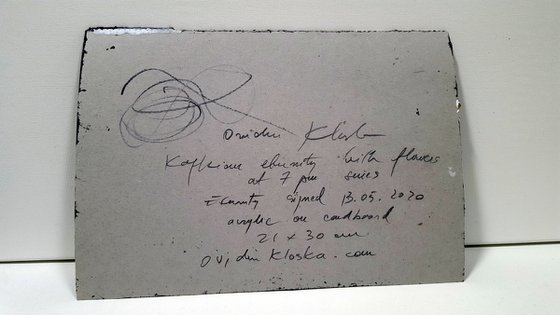 Ovidiu Kloska
Kafkian eternity with flowers
at 7 pm series
Eternity signed 13.05.2020
acrylic on cardboard
21 x 30 cm
ovidiu kloska.com